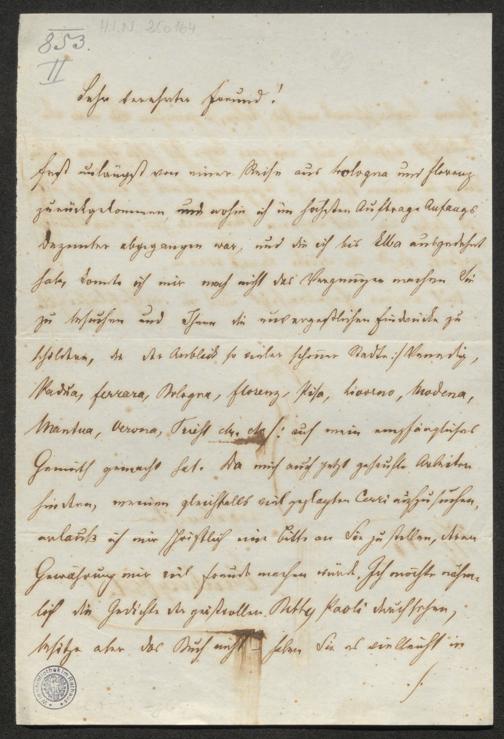 H.I.N. 250164
853.
II
Sehr verehrter Freund!
Erst unlängst von einer Reise aus Bologna und Florenz
zurückgekommen und wohin ich im höchsten Auftrage Anfangs
Dezember abgegangen war, und die ich bis Elba ausgedehnt
habe, konnte ich mir noch nicht das Vergnügen machen Sie
zu besuchen und Ihnen die unvergeßlichen Eindrücke zu
schildern, die der Anblick so vieler schöner Städte :/ Venedig,
Padua, Ferrara, Bologna, Florenz, Pisa, Livorno, Modena,
Mantua, Verona, Triest etc. etc. /: auf mein empfängliches
Gemüth gemacht hat. Da mich auch jetzt gehäufte Arbeiten
hindern, meinen gleichfalls vielgeplagten aufzusuchen,
erlaube ich mir schriftlich eine Bitte an Sie zu stellen, deren
Gewährung mir viel Freude machen würde. Ich möchte näm-
lich die Gedichte der geistvollen Betty Paoli durchsehen,
besitze aber das Buch nicht – haben Sie es vielleicht in
./.